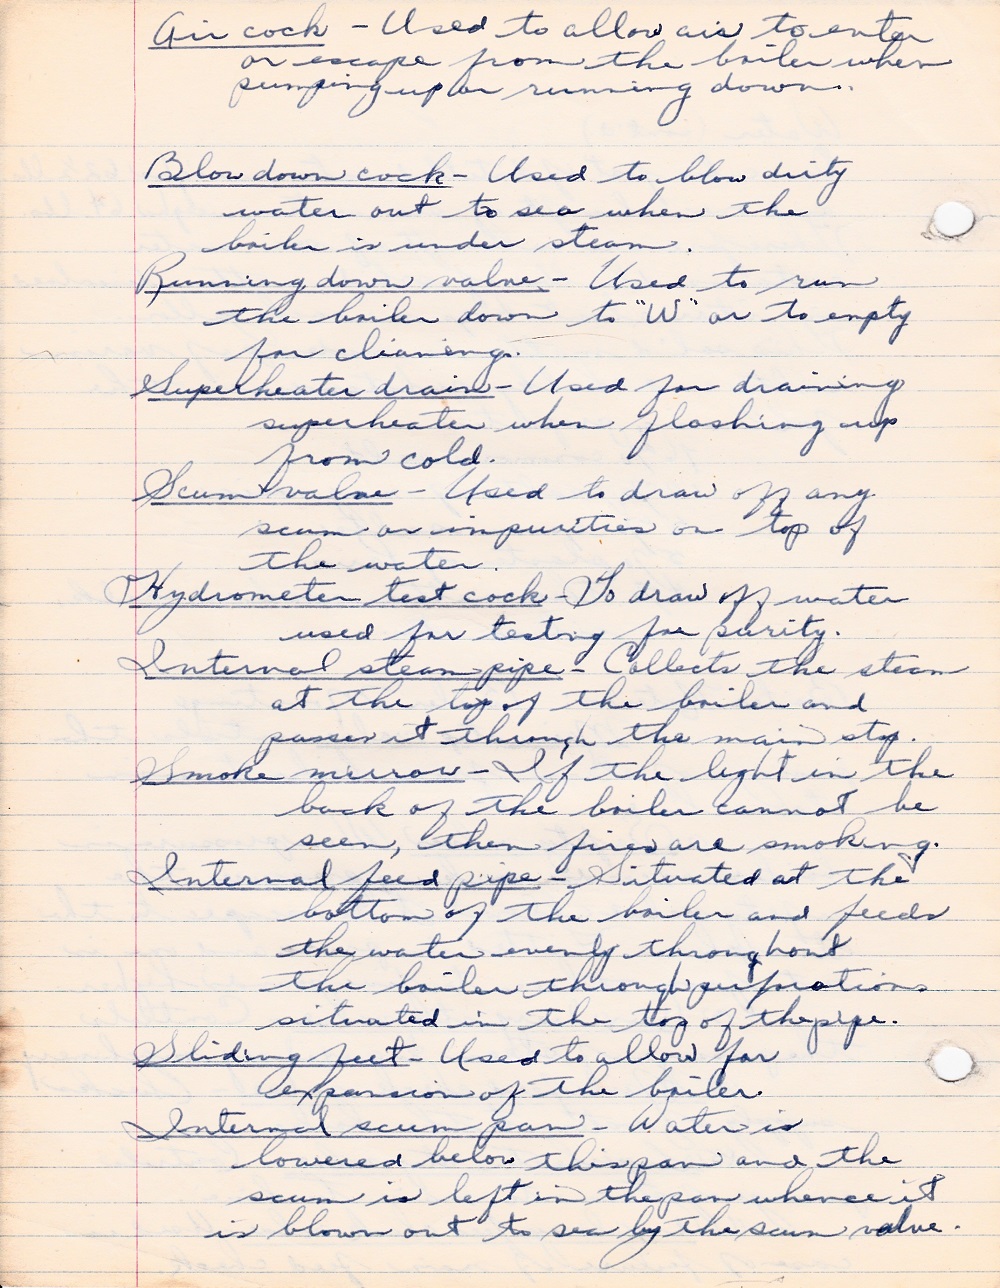 Air cock - Used to allow air to enter
or escape from the boiler when
pumping up or running down.
Blow down cock - Used to blow dirty
water out to sea when the
boiler is under steam.
Running down valve - Used to run
the boiler down to "W" or to empty
for cleaning.
Superheater drain - Used for draining
superheater when flashing up
from cold.
Scum valve - Used to draw off any
scum or impurities on top of
the water.
Hydrometer test cock - To draw off water
used for testing for purity.
Internal steam pipe - Collects the steam
at the top of the boiler and
passes it through the main stop.
Smoke mirror - If the light in the
back of the boiler cannot be
seen, then fires are smoking.
Internal feed pipe - Situated at the
bottom of the boiler and feeds
the water evenly throughout
the boiler through perforations
situated in the top of the pipe.
Sliding feet - Used to allow for
expansion of the boiler.
Internal scum pan - Water is
lowered below this pan and the
scum is left in the pan whence it
is blown out to sea by the scum valve.